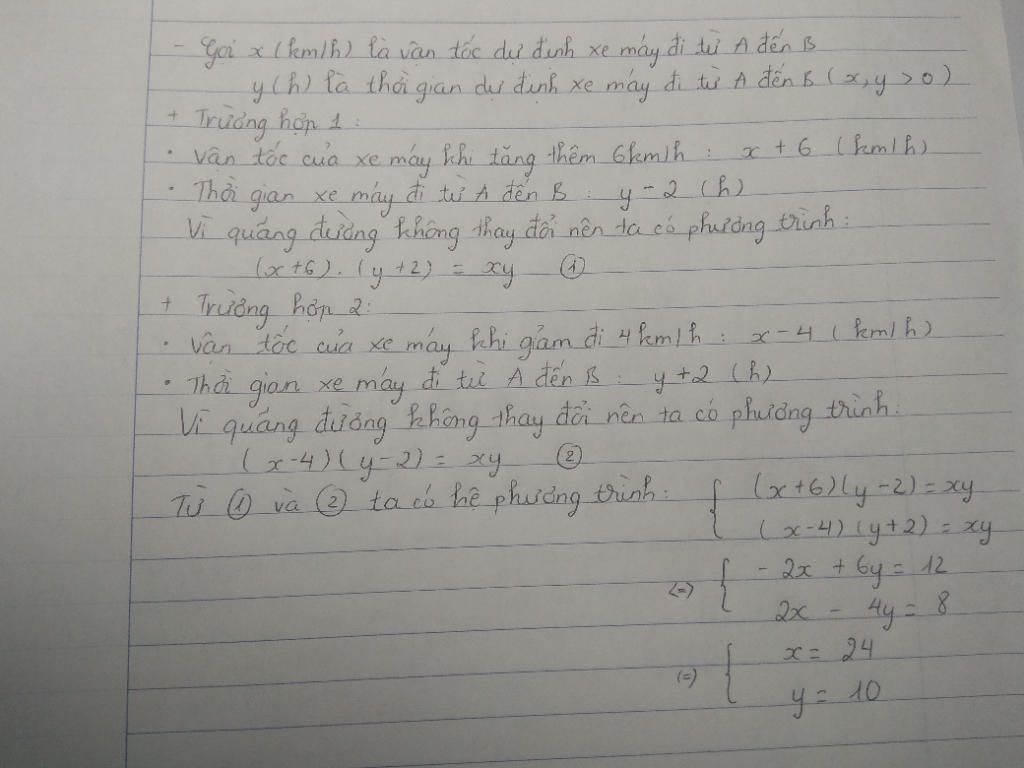 - Gọi x (km/h) là vận tốc dự định xe máy đi từ A đến B
y (h) là thời gian dự định xe máy đi từ A đến B (x, y > 0)
+ Trường hợp 1:
• Vận tốc của xe máy khi tăng thêm 6km/h : x + 6 (km/h)
• Thời gian xe máy đi từ A đến B : y - 2 (h)
Vì quãng đường không thay đổi nên ta có phương trình:
(x+6) . (y+2) = xy ①
+ Trường hợp 2:
• Vận tốc của xe máy khi giảm đi 4km/h : x - 4 (km/h)
• Thời gian xe máy đi từ A đến B : y + 2 (h)
Vì quãng đường không thay đổi nên ta có phương trình:
(x-4)(y-2) = xy ②
Từ ① và ② ta có hệ phương trình: { (x+6)(y-2) = xy
(x-4)(y+2) = xy
<=> { - 2x + 6y = 12
2x - 4y = 8
(=) { x = 24
y = 10